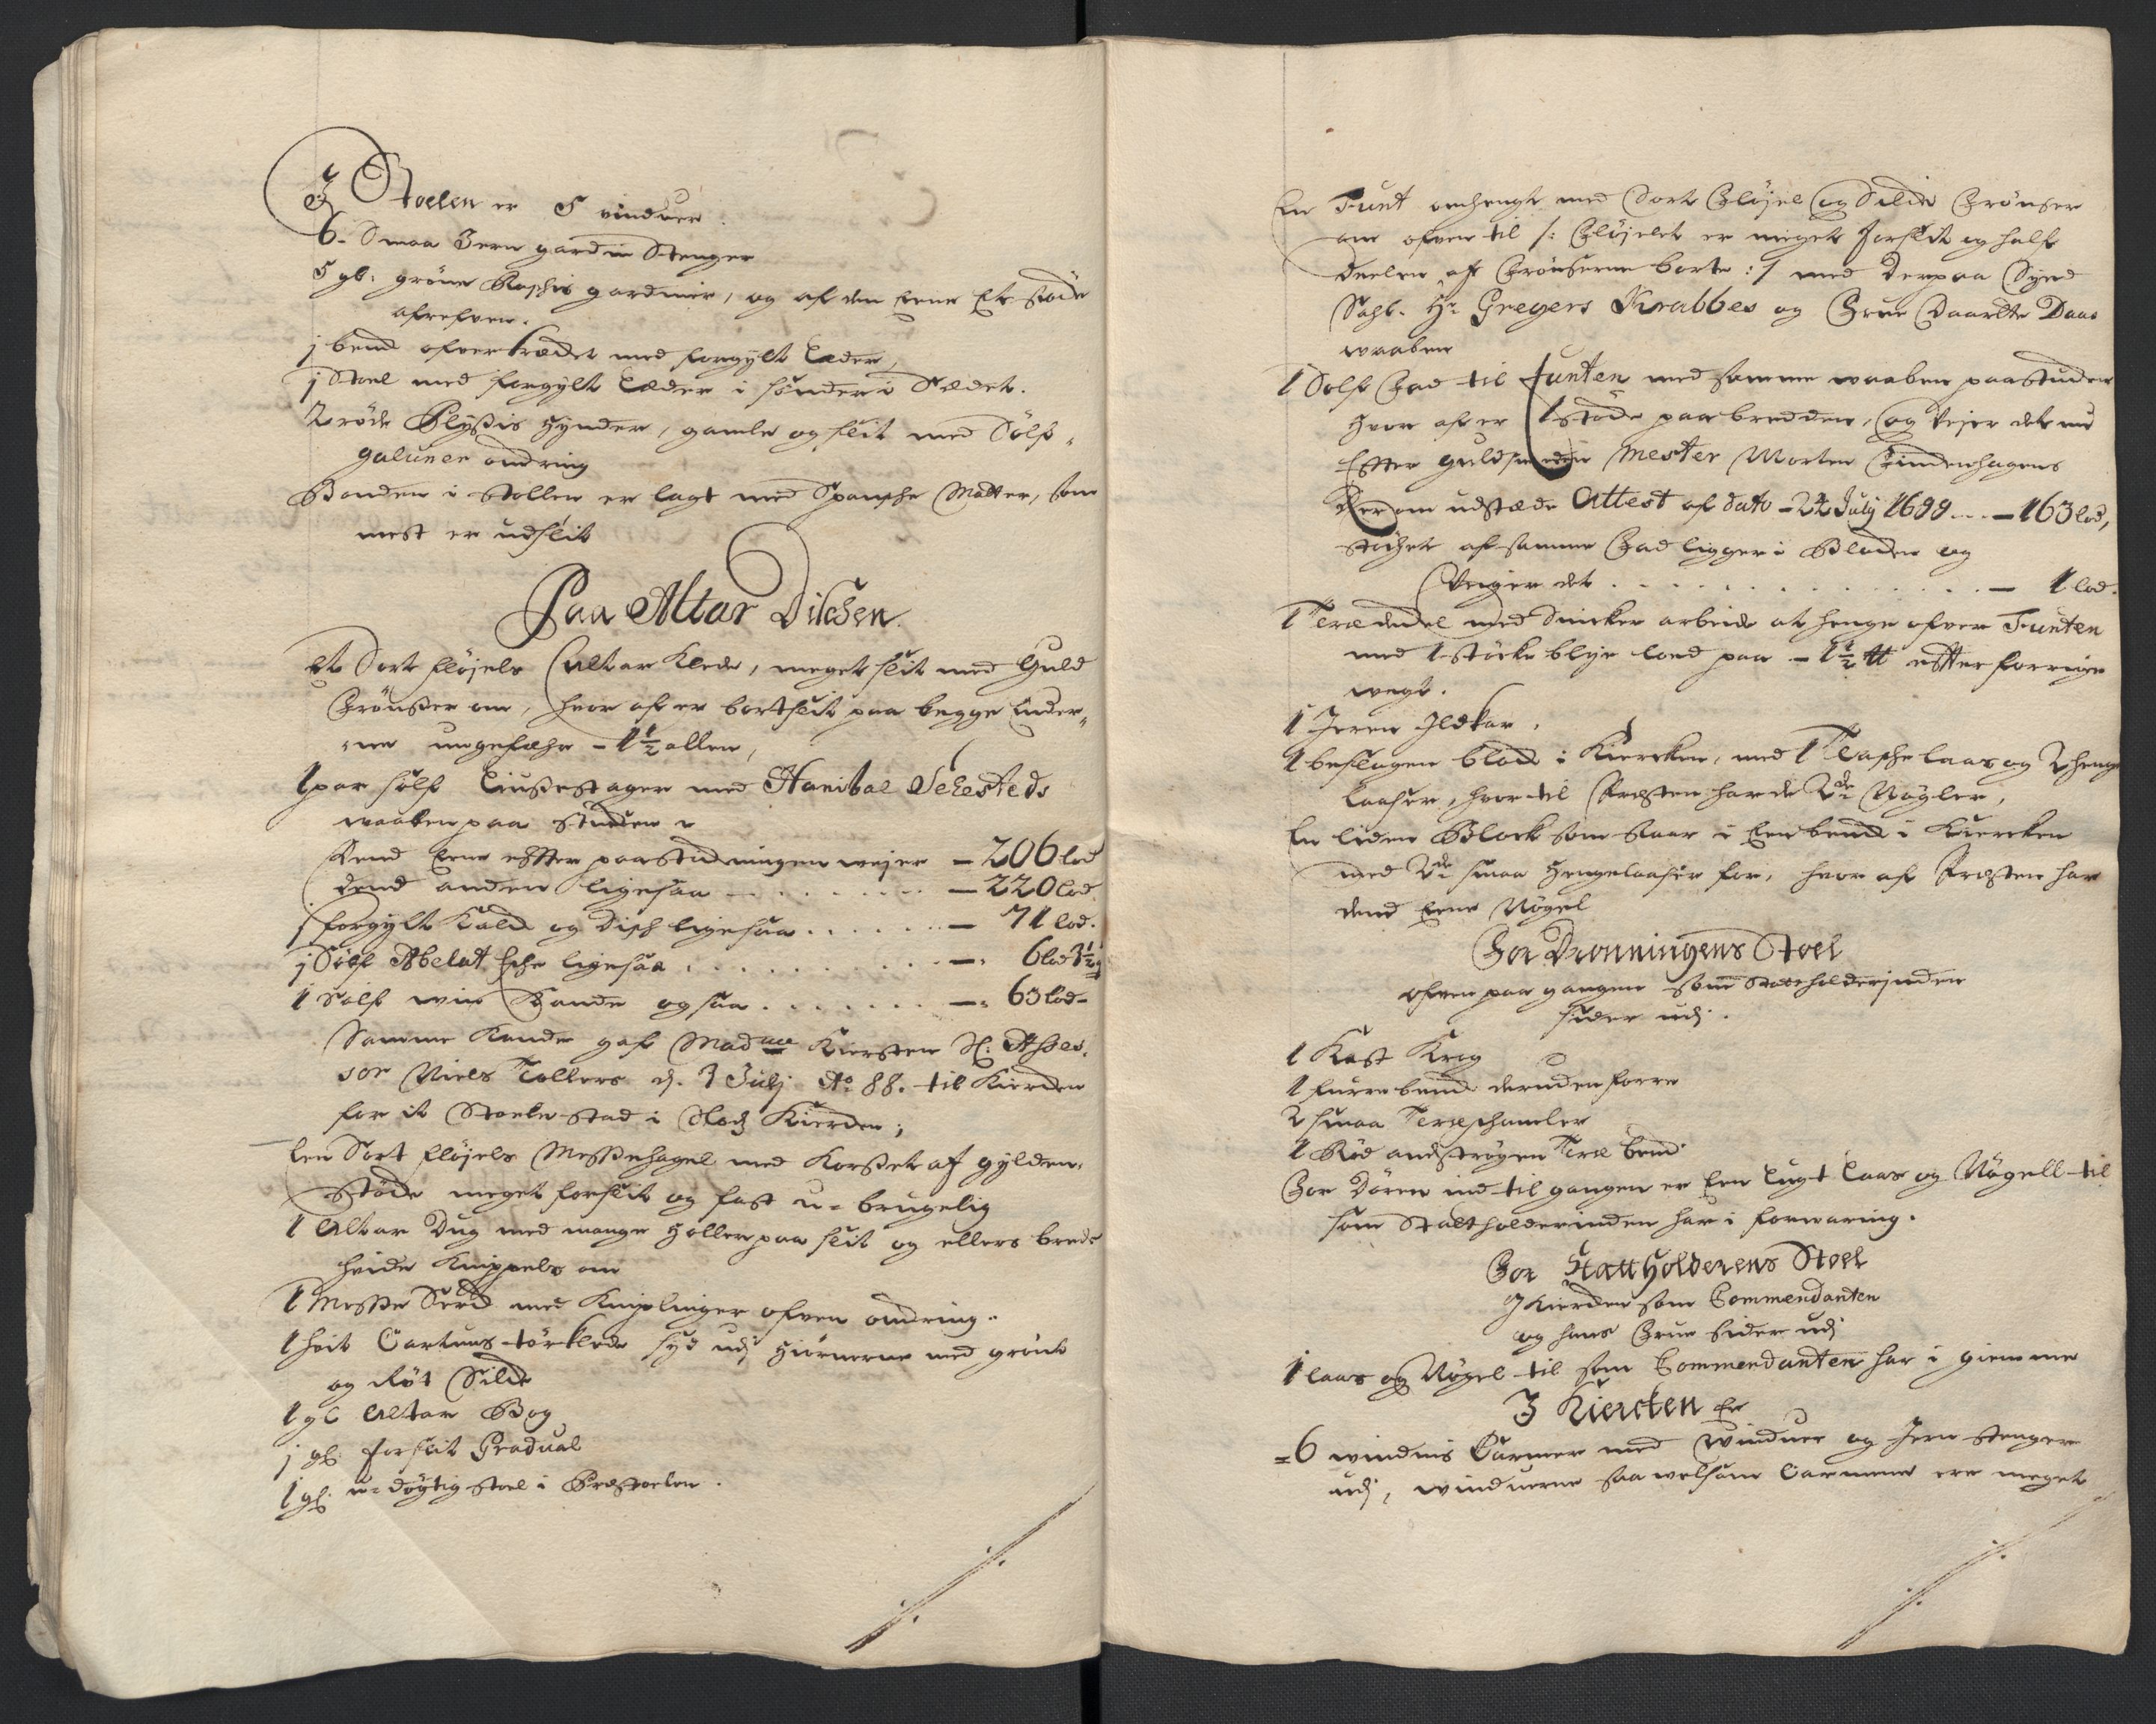 I Stoelen er 5 vinduer
6. Smaa Jern gardin Stenger
5 gl. grøne Raskis gardinir, og af den Eene Et støche
afrefven.
j benck ofvertrædet med forgylt Læder,
j Stoel med forgylt Læder i sønder i Sædet.
2 røde Plyssis Hynder, gamle og slit med Sølf
galuner omkring
Bonden i Stollen er lagt med Spansche Matter, som
mest er udslit
Paa Altar Dischen.
Et Sort fløjels Altar Klede, meget slit med Guld
Frøntzer om, hvor af er bortslit paa begge Ender¬
ne ungefæhr - 1½ allen,
1 par sølf Liussestager med Hanibal Sehesteds
waaben paa Stuchen
Dend Eene effter paastichningen wejer - 206 lod
dend anden ligesaa - 220 lod
j forgylt Kalck og Disch ligesaa - 71 lod.
j Sølf Abelat Esche ligesaa - 6 lod 3½ q
1 Sølf win Kande og saa - 63 lod
Samme Kande gaf Madme Kiersten Sl. Asses¬
sor Niels Tollers d. 3 Julj Ao 88. til Kircken
for it Stoele stad i Slotz Kircken;
Een Sort fløjels Messehagel med Korsset af gylden
Støche meget forslit og fast u-brugelig
1 Altar Dug med mange Holler paa slit og ellers brede
hvide Knippels om
1 Messe Serck med Kniplinger ofven omkring.
1 hvit Cartuns tørklede syd udj Hiørnerne med grønt
og Røt Silche
1 gl Altar Bog
j gl. forslit Gradual
1 gl. u-døgtig Stoel i Prestoelen.
En Funt omhengt med Sort Fløjel og Silche Frøntzer
om ofven til /: Fløjelet er meget forslit og half
deelen af Frøntzerne borte :/ med derpaa Syed
Sahl. Hr Gregers Krabbes og Frue Daarete Daas
waaben
1 Sølf Fad til Funten med samme waaben paastuchen
Hvor af er 1 støche paa bredden, og Vejer det nu
Effter guldsmeden Mester Morten Findenhagens
Der om udstæde Attest af dato - 24 Julj 1699 - 163 lod,
Støchet af samme Fad ligger i Blocken og
Vejer det - 1 lod.
1 Trædechel med Snicker arbeide at henge ofver Funten
med 1 støche blye Loed paa - 1½ ℔ effter forrige
wegt.
1 Jeren Ildkar.
1 beslagen block i Kiercken, med 1 Tasche laas og 2 henge
Laaser, hvor til Præsten har de 2de Nøgler,
En liden Block som staar i Een benck i Kiercken
med 2de smaa Hengelaaser for, hvor af Præsten har
dend Eene Nøgel
For Dronningens Stoel
ofven paa gangen som Statholderinden
sider udj.
1 Kast Krog
1 furre benck der uden forre
2 smaa Træschameler
1 Rød anstrøgen Træ benck
For Døren ind til gangen er Een Lugt Laas og Nøgell til
som Statholderinden har i forwaring.
For Statt Holderens Stoel
I Kiercken som Commendanten
og hans Frue sider udj
1 laas og Nøgel til som Commendanten har i giemme
I Kiercken Er
=6 windvis Carmer med Winduer og Jern Stenger
udj, winduerne saa welsom Carmene ere meget